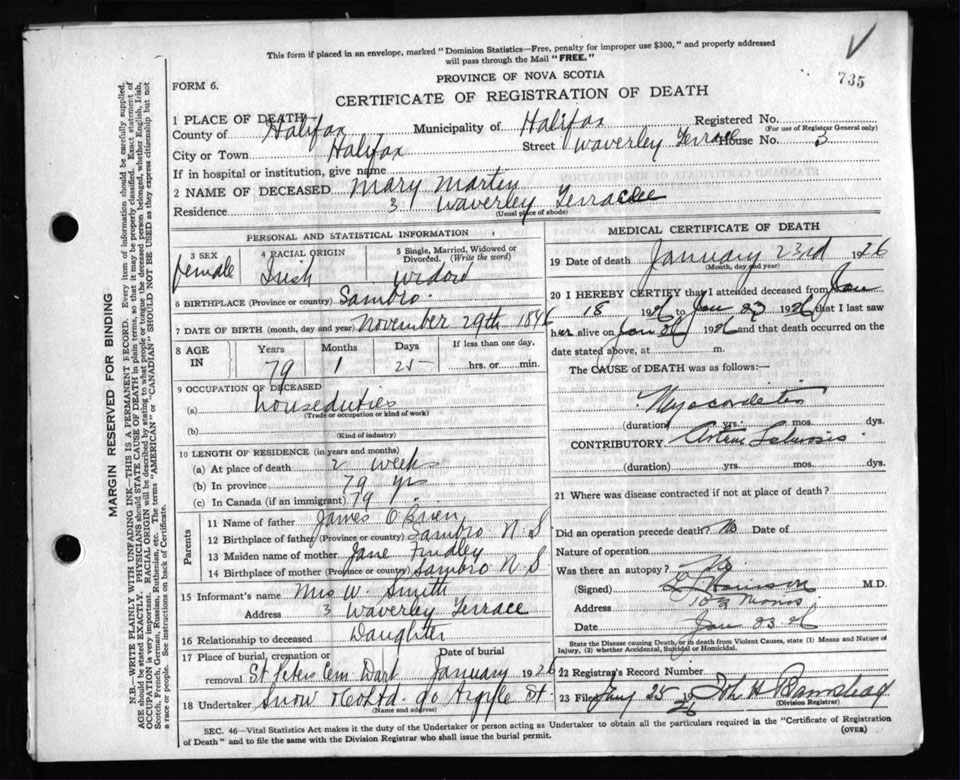 This form if placed in an envelope, marked "Dominion Statistics—Free, penalty for improper use $300," and properly addressed
will pass through the Mail "FREE."
735
PROVINCE OF NOVA SCOTIA
FORM 6.
CERTIFICATE OF REGISTRATION OF DEATH
1 PLACE OF DEATH
County of Halifax Municipality of Halifax Registered No.
(For use of Registrar General only)
City or Town Halifax Street Waverley Terrace House No. 3
If in hospital or institution, give name
2 NAME OF DECEASED Mary Martin
Residence 3 Waverley Terrace
(Usual place of abode)
PERSONAL AND STATISTICAL INFORMATION
3 SEX female
4 RACIAL ORIGIN Irish
5 Single, Married, Widowed or Divorced. (Write the word) widow
6 BIRTHPLACE (Province or country) Sambro.
7 DATE OF BIRTH (month, day and year) November 29th 1846
8 AGE IN Years Months Days If less than one day,
79 1 25 hrs. or min.
9 OCCUPATION OF DECEASED
(a) houseduties
(Trade or occupation or kind of work)
(b)
(Kind of industry)
10 LENGTH OF RESIDENCE (in years and months)
(a) At place of death 2 weeks
(b) In province 79 yrs
(c) In Canada (if an immigrant) 79
Parents
11 Name of father James O'Brien
12 Birthplace of father (Province or country) Sambro N. S
13 Maiden name of mother Jane Findley
14 Birthplace of mother (Province or country) Sambro N. S
15 Informant's name Mrs W. Smith
Address 3 Waverley Terrace
16 Relationship to deceased Daughter
17 Place of burial, cremation or removal St Peters Cem Dart Date of burial January 1926
18 Undertaker Snow & Co Ltd. 90 Argyle St.
(Name and address)
MEDICAL CERTIFICATE OF DEATH
19 Date of death January 23rd 1926
(Month, day and year)
20 I HEREBY CERTIFY that I attended deceased from Jan
18 1926 to Jan 23 1926 that I last saw
her alive on Jan 1926 and that death occurred on the
date stated above, at m.
The CAUSE of DEATH was as follows:—
Myocarditis
(duration) yrs. mos. dys.
CONTRIBUTORY Arterio Sclerosis
(duration) yrs. mos. dys.
21 Where was disease contracted if not at place of death?
Did an operation precede death? No Date of
Nature of operation
Was there an autopsy? No
(Signed) M.D.
Address Morris
Date Jan 23 26
State the Disease causing Death, or in death from Violent Causes, state (1) Means and Nature of
Injury, (2) whether Accidental, Suicidal or Homicidal.
22 Registrar's Record Number
23 Filed Jany 25 1926 John H Barnstead
(Division Registrar)
SEC. 46—Vital Statistics Act makes it the duty of the Undertaker or person acting as Undertaker to obtain all the particulars required in the "Certificate of Registration
of Death" and to file the same with the Division Registrar who shall issue the burial permit.
(OVER)
MARGIN RESERVED FOR BINDING
N.B.—WRITE PLAINLY WITH UNFADING INK—THIS IS A PERMANENT RECORD. Every item of information should be carefully supplied.
AGE should be stated EXACTLY. PHYSICIANS should STATE CAUSE OF DEATH in plain terms, so that it may be properly classified. Exact statement of
OCCUPATION is very important. RACIAL ORIGIN will be described by stating to what people or tongue the deceased person belonged, whether English, Irish,
Scotch, French, German, Russian, Ruthenian, etc. The terms "AMERICAN" or "CANADIAN" SHOULD NOT BE USED as they express citizenship but not
a race or people. See instructions on back of Certificate.